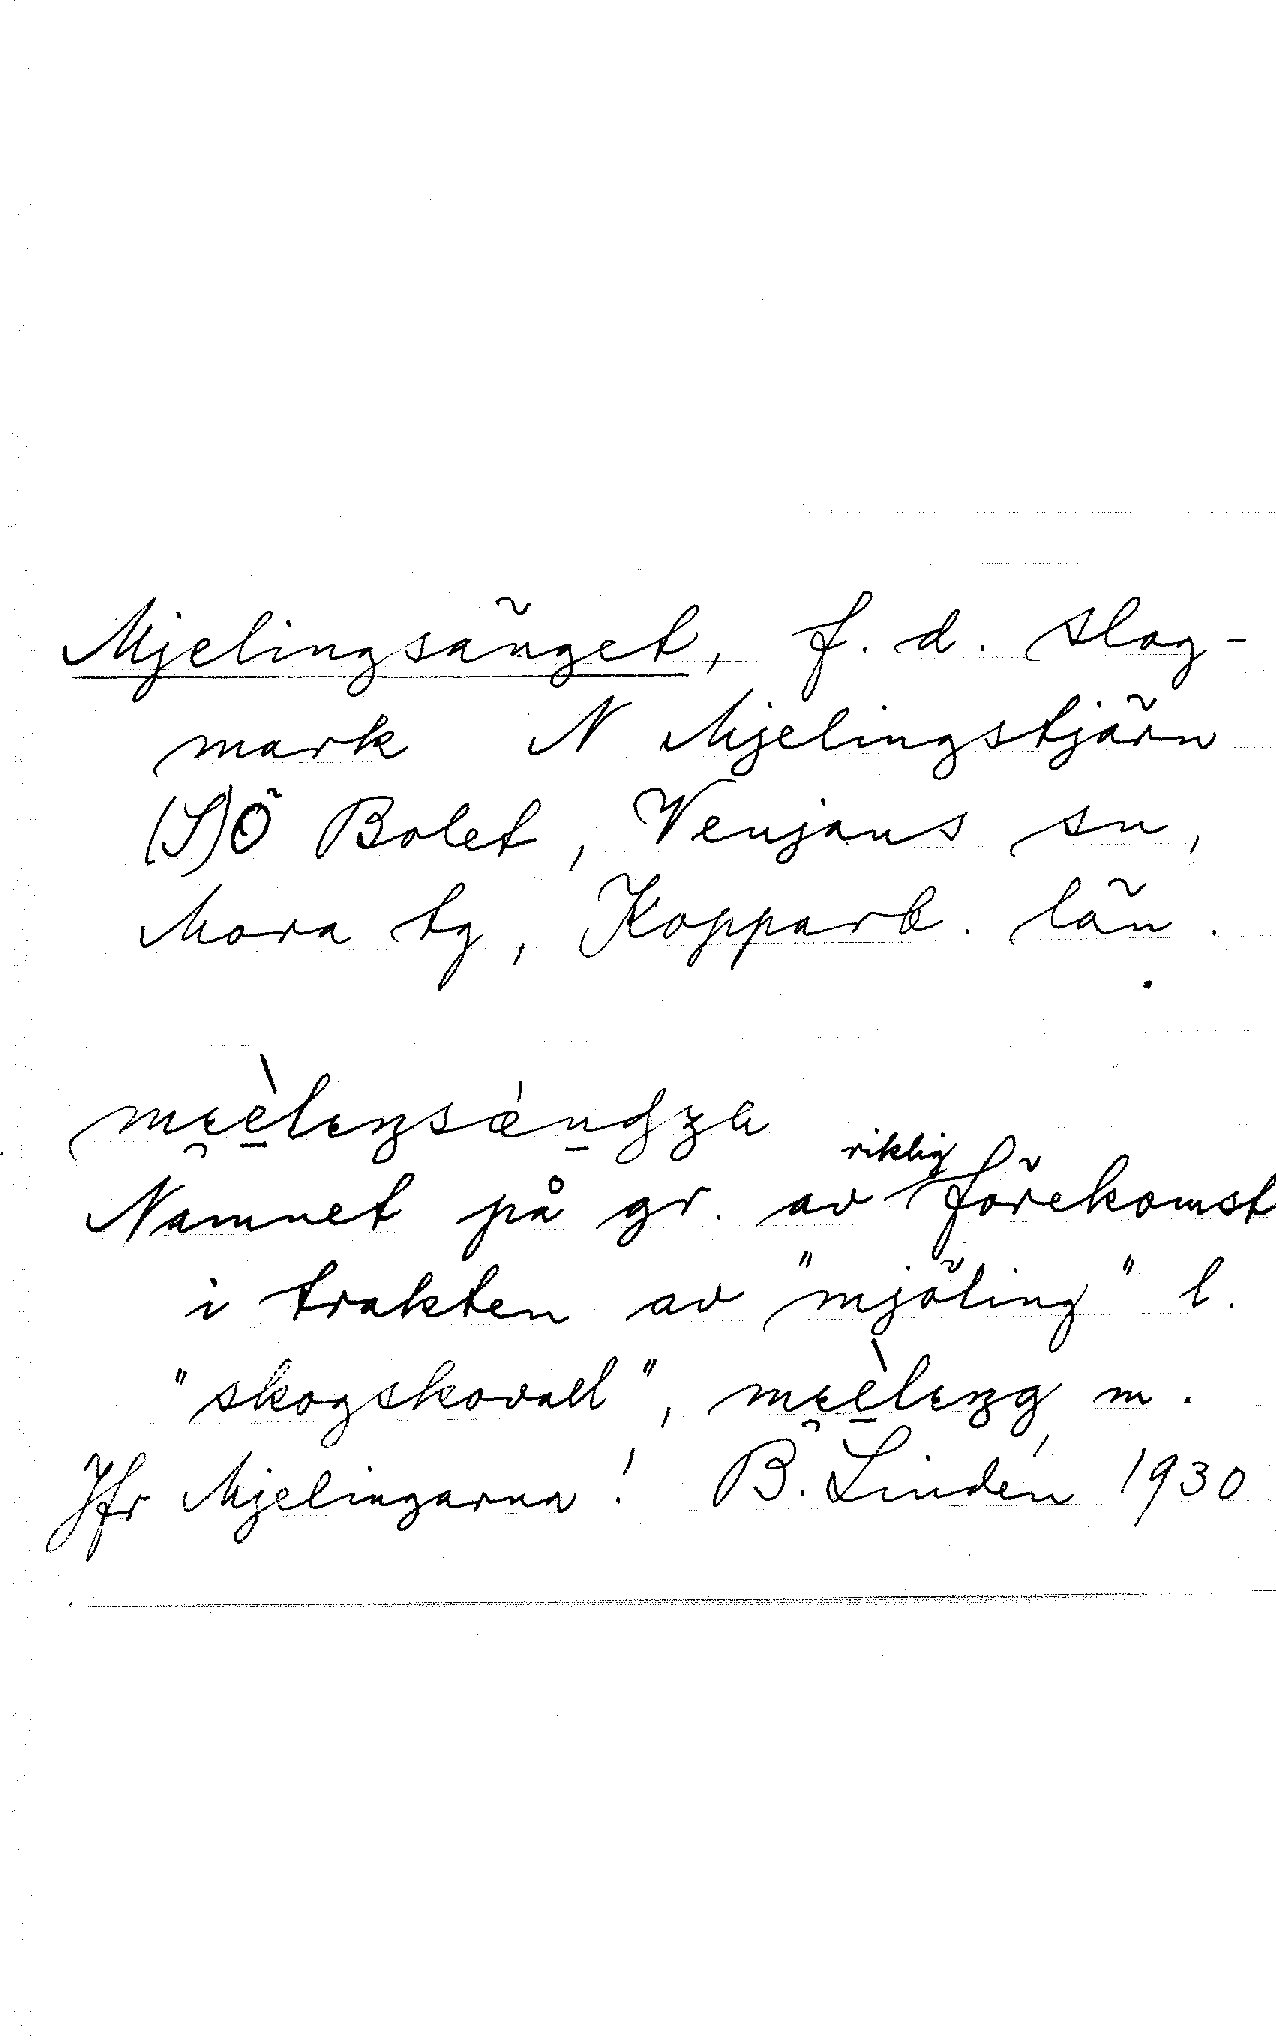 Mjelingsänget, f. d. slog-
mark N Mjelingstjärn
(S)Ö Bolet, Venjans sn,
Mora tg, Kopparb. län.
Namnet på gr. av riklig förekomst
i trakten av "mjöling" l.
"skogskovall", m.
Jfr Mjelingarna! B. Lindén 1930